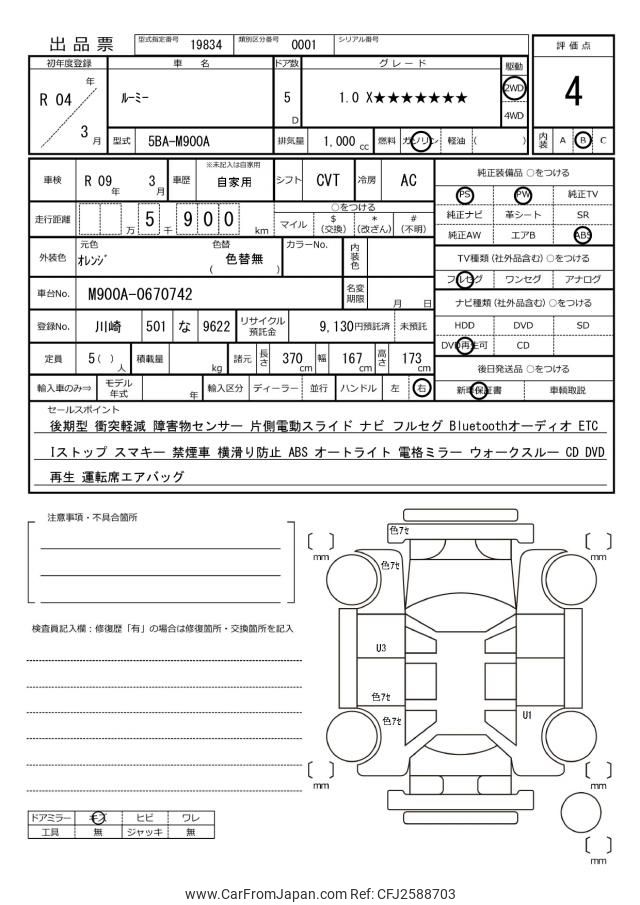 出品票
型式指定番号 19834 類別区分番号 0001 シリアル番号
評価点
初年度登録 車名 ドア数 グレード 駆動
R 04 年 ルーミー 5 D 1.0 X★★★★★★★ 2WD 4
3 月 4WD
型式 5BA-M900A 排気量 1,000 cc 燃料 ガソリン 軽油 ( ) 内装 A B C
車検 R 09 年 3 月 車歴 ※未記入は自家用 自家用 シフト CVT 冷房 AC
純正装備品 ○をつける
PS PW 純正TV
走行距離 万 5 千 9 0 0 km
○をつける
マイル $ (交換) * (改ざん) # (不明)
純正ナビ 革シート SR
純正AW エアB ABS
外装色 元色 オレンジ 色替 ( 色替無 ) カラーNo. 内装色
TV種類 (社外品含む) ○をつける
フルセグ ワンセグ アナログ
車台No. M900A-0670742 名変期限 月 日
ナビ種類 (社外品含む) ○をつける
登録No. 川崎 501 な 9622 リサイクル預託金 9,130円預託済 未預託
HDD DVD SD
DVD再生可 CD
定員 5 ( ) 人 積載量 kg 諸元 長さ 370 cm 幅 167 cm 高さ 173 cm
後日発送品 ○をつける
輸入車のみ⇒ モデル年式 年 輸入区分 ディーラー 並行 ハンドル 左 右
新車保証書 車輌取説
セールスポイント
後期型 衝突軽減 障害物センサー 片側電動スライド ナビ フルセグ Bluetoothオーディオ ETC
Iストップ スマキー 禁煙車 横滑り防止 ABS オートライト 電格ミラー ウォークスルー CD DVD
再生 運転席エアバッグ
注意事項・不具合箇所
色7セ
mm
mm
色7セ
検査員記入欄：修復歴「有」の場合は修復箇所・交換箇所を記入
U3
色7セ
色7セ
U1
mm
mm
ドアミラー キズ ヒビ ワレ
工具 無 ジャッキ 無
mm
www.CarFromJapan.com Ref: CFJ2588703